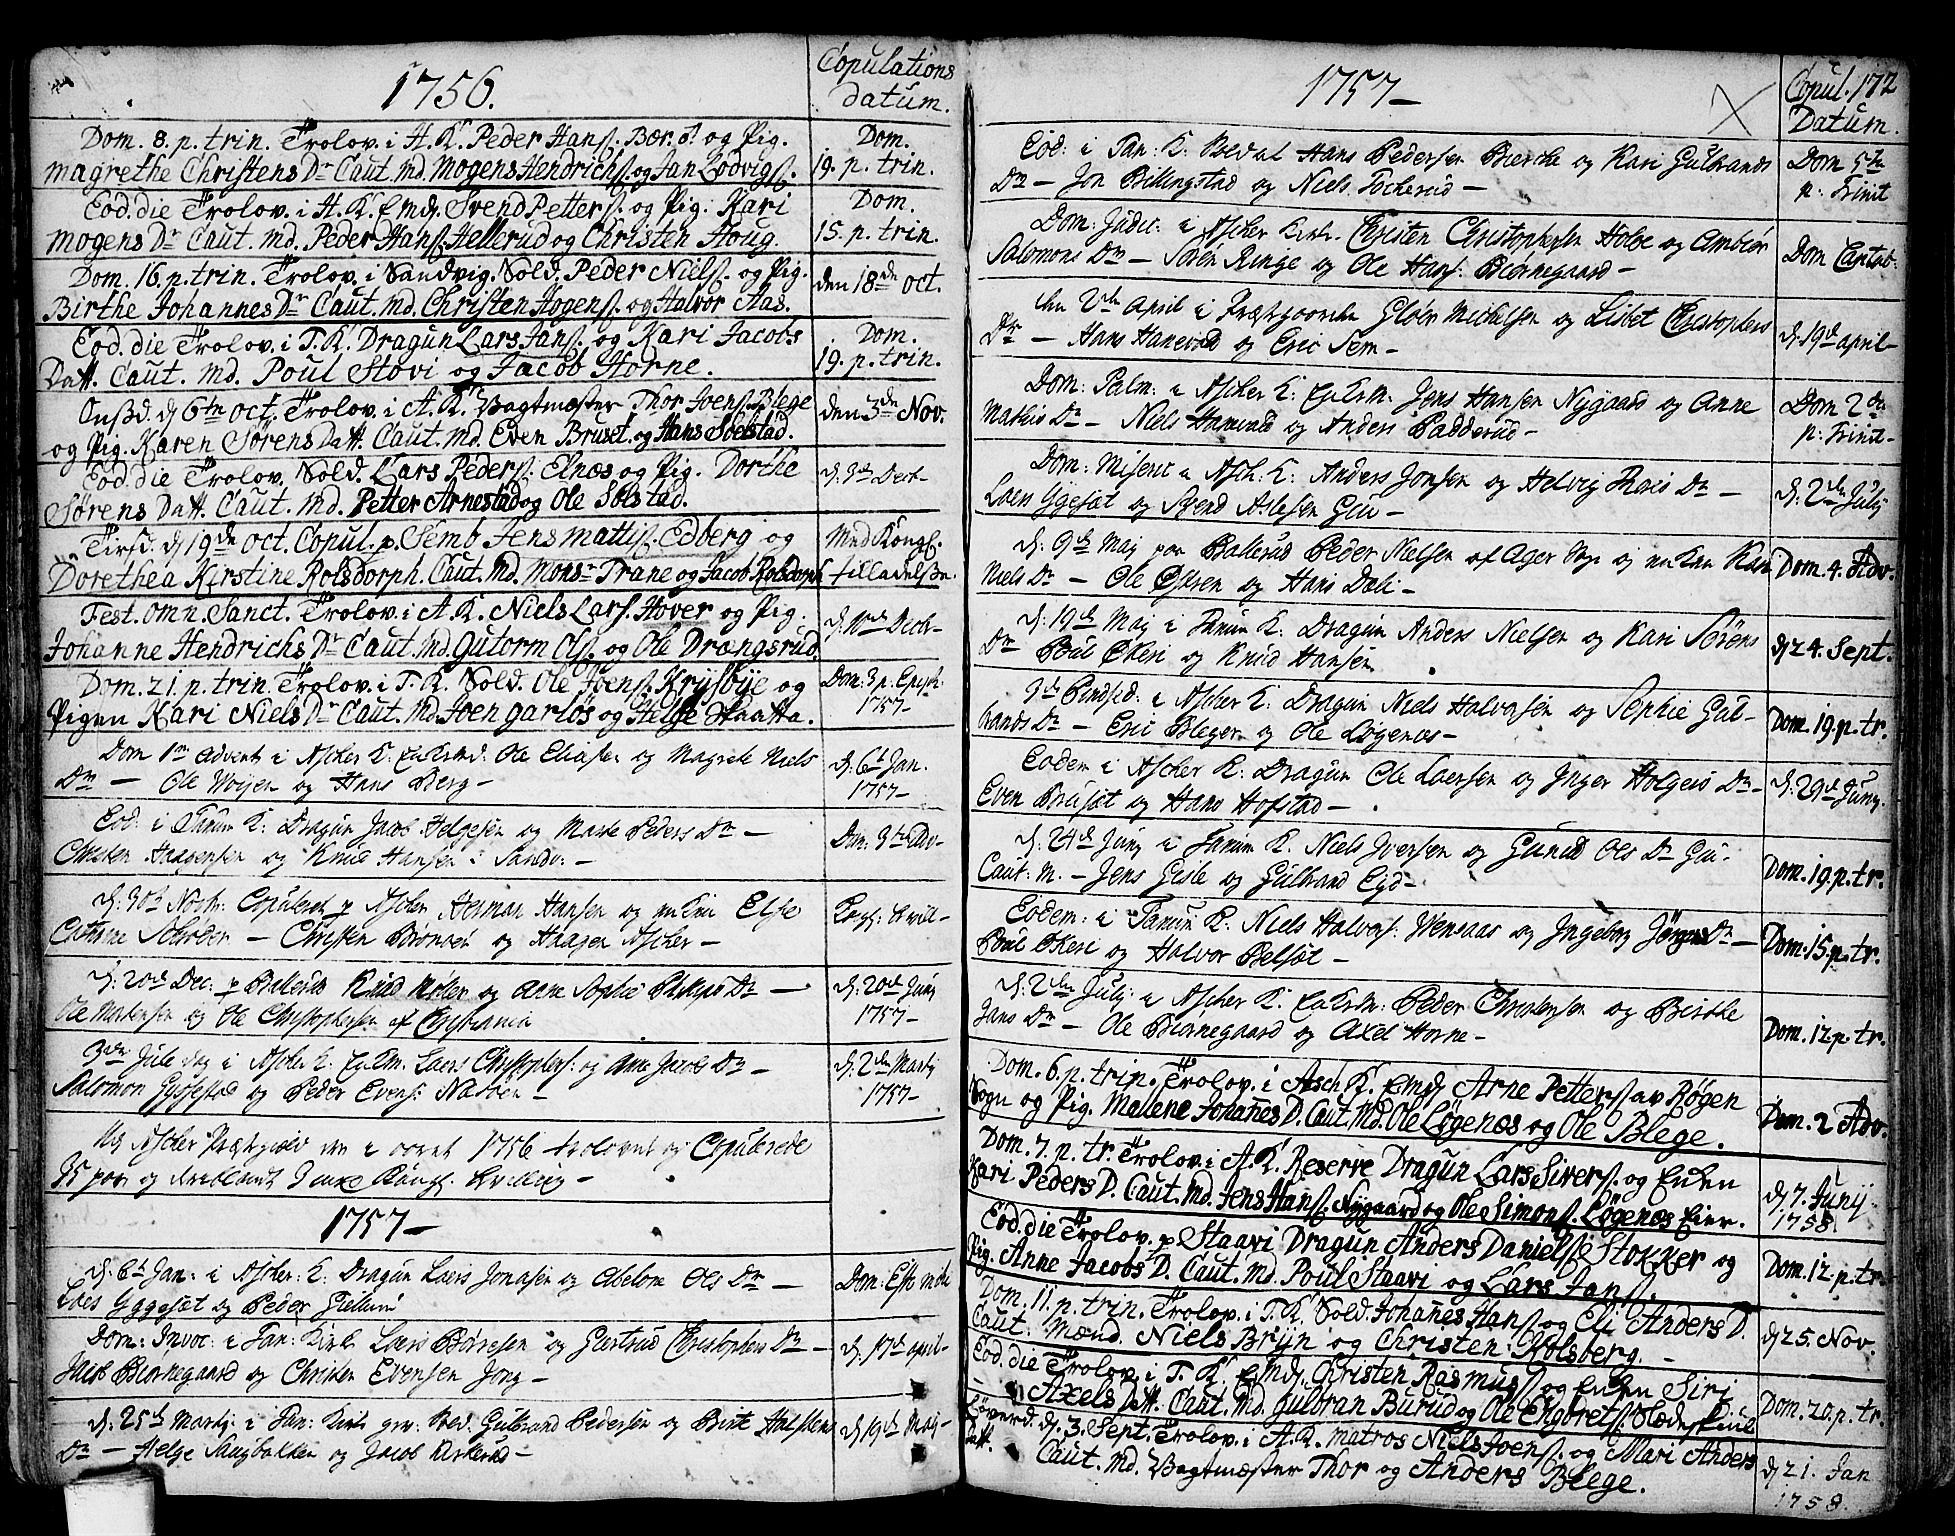 1756.
Copulations
datum.
Dom. 8. p. trin. Trolov. i A. K. Peder Hanss. Bær. S. og Pig.
Magrethe Christens Dr Caut. Md. Mogens Hendrichss. og Jan Lodvigs.
Dom.
19. p. trin.
Eod. die Trolov. i A. K. Emdj. Svend Petters. og Pig. Kari
Mogens Dr Caut. Md. Peder Hanss. Hellerud og Christen Houg.
Dom.
15. p. trin.
Dom. 16. p. trin. Trolov. i Sandvig. Sold. Peder Nielss. og Pig.
Birthe Johannes Dr Caut. Md. Christen Hogenss. og Halvor Aas.
den 18de oct.
Eod. die Trolov. i T. K. Dragun Lars Janss. og Kari Jacobs
Datt. Caut. Md. Poul Stovi og Jacob Horne.
Dom.
19. p. trin.
Onssd. dj 6te oct. Trolov. i A. K. Vagtmester Thor Joenss. Blege
og Pig. Karen Sørens Datt. Caut. Md. Even Bruset. og Hans Solstad.
den 3de Nov.
Eod. die Trolov. Sold. Lars Pederss. Elnæs og Pig. Dorthe
Sørens Datt. Caut. Md. Petter Arnestad og Ole Solstad.
dj. 3de Decb-
Tirsd. dj 19de oct. Copul. p. Semb Jens Mattiss. Edberg og
Dorethea Kirstine Rolsdorph. Caut. Md. Monsr Trane og Jacob Rolsdorph
Med Kongl.
tilladelsse.
Fest. omn. Sanct. Trolov. i A. K. Niels Larss. Hover og Pig.
Johanne Hendrichs Dr Caut. Md. Gutorm Olss. og Ole Drængsrud.
Dom. 21. p. trin. Trolov. i T. K. Sold. Ole Joenss. Krysbye og
Pigen Kari Niels Dr Caut. Md. Joen Garløs og Helge Skaatta.
Dom: 3 p. Epiph:
1757-
Dom 1m advent i Ascher K: Ole Eliassen og Magrete Niels
Dr - Ole Woyen og Hans Berg-
dj: 6t Jan.
1757-
Eod: i Tanum K: Dragun Jacob Helgesen og Marte Peders Dr -
Christen Haagensen og Knud Hansen i Sandv: -
dj. 30t Novbr: Copuleret p Ascher Herman Hansen og Else
Cathrine Schrøder - Christen Brønøen og Haagen Ascher-
dj: 20de Dec: p Ballerud Knud Møller og Anne Sophie Dr -
Ole Mortensen og Ole Christophersen af Christiania
dj. 20de Junj
1757-
3de Jule dag i Ascher K. Lars Christophers: og Anne Jacobs Dr -
Salomon Gyssestad og Peder Evens: Næsøen-
dj. 2den Martj
1757-
Ascher Præstegield i aaret 1756 trolovet og Copulerede
35 par og
1757-
dj. 6t Jan: i Ascher K: Dragun Lars Jonassen og Abelone Ols Dr -
Lars Yggeset og Peder Giellum
Dom: Esto mihi
Dom: Invoc: i Tan: Kirke Lars Børresen og Giertrud Christophers Dr -
Jacob Biørnegaard og Christen Evensen Jong-
dj. 17de april-
dj. 25de Martj i Tan: Kirke Gulbrand Pedersen og Birte Halstens
Dr - Helge Haugbakken og Jacob
dj 19de Maj-
1757-
Copul. 172
Datum.
Eod: i Tan: K: Hans Pedersen Bierche og Kari Gulbrands
Dr - Jon Billingstad og Niels Tockerud-
Dom 5te
p: Trinit
Dom: Judic: i Ascher Kirke Christen Christophersen Holoe og Ambiør
Salomons Dr - Søren Ringe og Ole Hans: Biørnegaard-
Dom Cantab:
den 2den April i Præstgaarden Gloer Michelsen og Lisbet Christophers
Dr - Hans Hanevold og Eric Sem-
dj. 19de april-
Dom: Palm: i Ascher K: Jens Hansen Nygaard og Anne
Mathis Dr - Niels Hanevold og Anders Padderud-
Dom 2den
p: Trinit-
Dom: Miseric i Asch: K: Anders Jonsen og Helvig Thores Dr -
Lars Yggeset og Svend Aslesen Giu-
dj: 2den Julj
dj. 9de Maj paa Ballerud Peder Nielsen af Ager Sogn og enken Kari
Niels Dr - Ole Østern og Hans Dæli-
Dom. 4. Adv.
dj. 19de Maj i Tanum K: Dragun Anders Nielsen og Kari Sørens
Dr Poul Økeri og Knud Hansen
dj 24. Sept.
3de Pindsd: i Ascher K: Dragun Niels Halvorsen og Sophie Gul-
brands Dr - Eric Bleger og Ole Løgenæs-
Dom. 19. p. tr.
Eodem i Ascher K: Dragun Ole Larsen og Inger Holgers Dr-
Even Bruset og Hans Hofstad-
dj: 29de Junj.
dj. 24de Junj i Tanum K. Niels Iversen og Gunild Ols Dr Giu-
Caut: M. - Jens Gisle og Gulbrand Eyd-
Dom. 19. p. tr.
Eodem: i Tanum K: Niels Halvors: Wensaas og Ingeborg Jørgens Dr -
Poul Økeri og Halvor Belset-
Dom. 15. p. tr.
dj: 2den Julj: i Ascher K: Peder Christensen og Birthe
Jans Dr - Ole Biørnegaard og Axel Horne-
Dom. 12. p. tr.
Dom. 6. p. trin. Trolov. i Asch K. Emdj Arne Petterss. av Røgen
Sogn og Pig. Malene Johanes D. Caut. Md. Ole Løgenæs og Ole Blege.
Dom. 2 Adv.
Dom. 7. p. tr. Trolov. i A. K. Reserve Dragun Lars Siverss. og Enken
Kari Peders D. Caut. Md. Jens Hanss. Nygaard og Ole Simonss. Løgenæs Eier.
dj 7. Junij
1758.
Eod. die Trolov. p. Staavi Dragun Anders Danielss. Stokker og
Pig. Anne Jacobs D. Caut. Md. Poul Staavi og Lars Janss.
Dom. 12. p. tr.
Dom. 11. p. trin. Trolov. i T. K. Sold. Johanes Hanss og Eli Anders D.
Caut. Mænd. Niels Bryn og Christen Kolsberg. -
dj 25. Nov.
Eod. die Trolov. i T. K. Emdj. Christen Rasmuss og Enken Siri
Axels Datt. Caut. Md. Gulbran Burud og Ole Engbretss. Slæderskiul
Dom. 20. p. tr.
Løverd. dj. 3. Sept. Trolov. i A. K. Matros Niels Joenss. og Mari Anders
Datt. Caut. Md. Vagtmæster Thor og Anders Blege.
dj 21. Jan
1758.